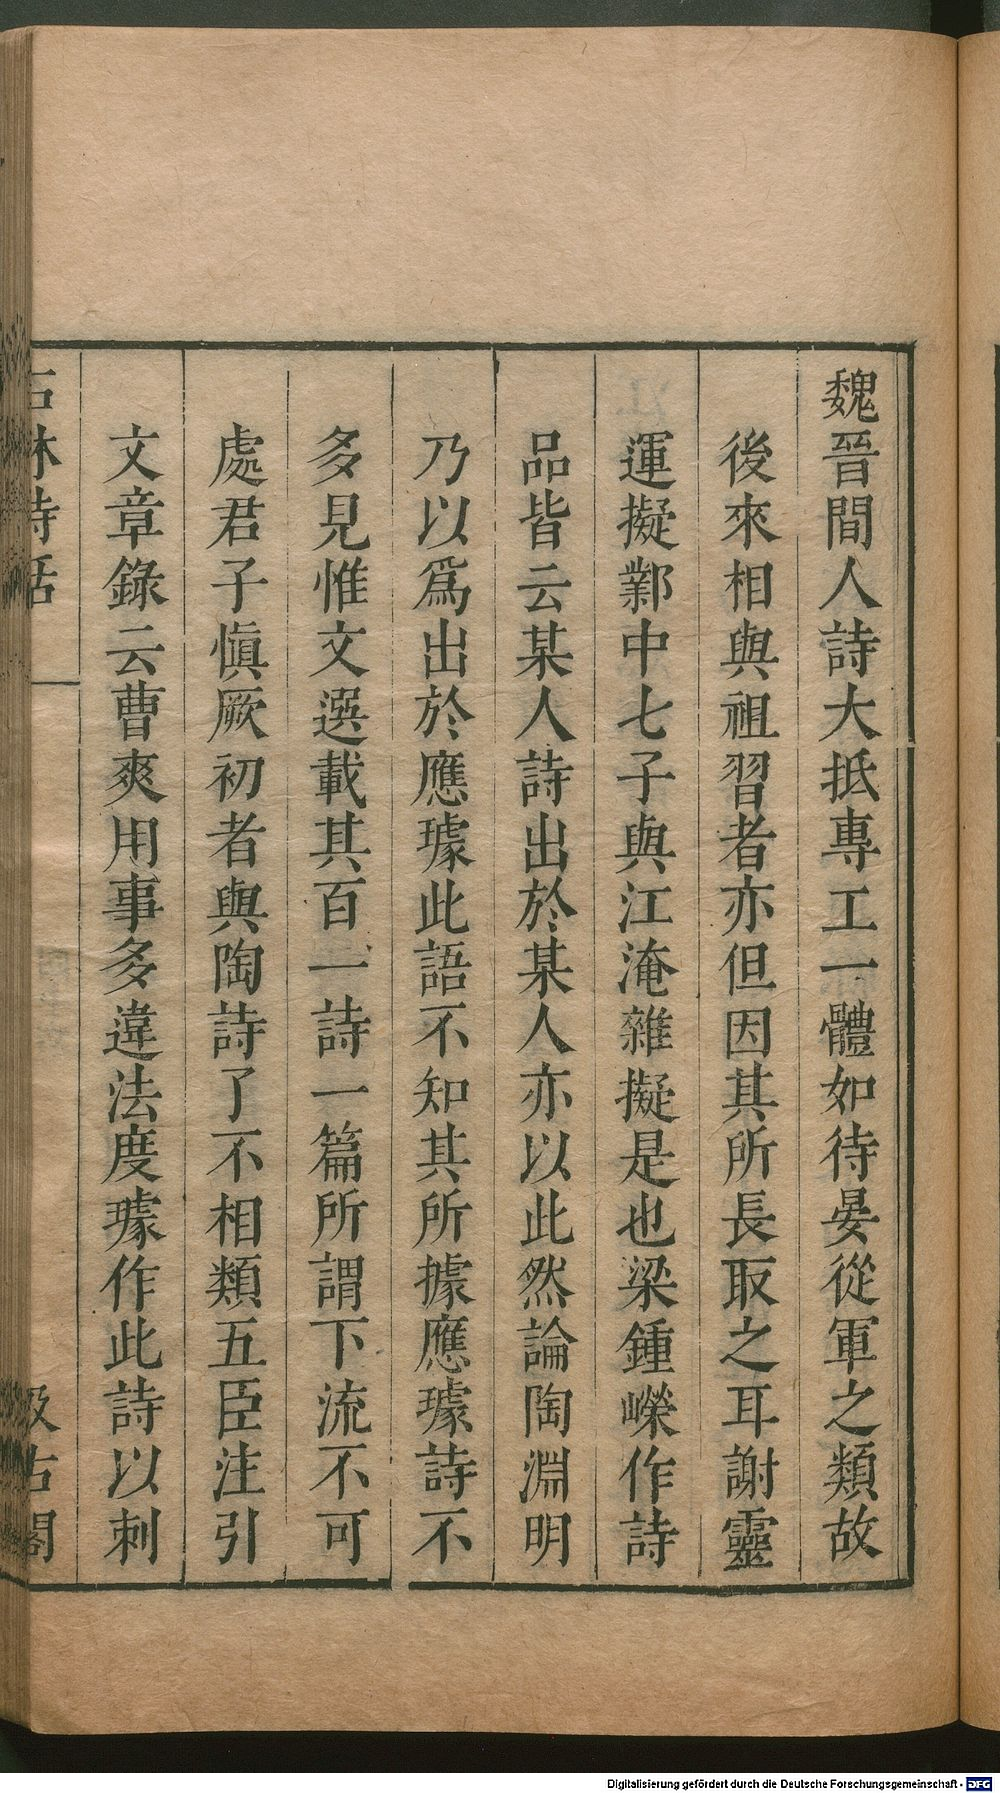 魏晉間人詩大抵專工一體如待晏從軍之類故
後來相與祖習者亦但因其所長取之耳謝靈
運擬鄴中七子與江淹雜擬是也梁鍾嶸作詩
品皆云某人詩出於某人亦以此然論陶淵明
乃以爲出於應璩此語不知其所據應璩詩不
多見惟文選載其百一詩一篇所謂下流不可
處君子慎厥初者與陶詩了不相類五臣注引
文章錄云曹爽用事多違法度璩作此詩以刺
石林詩話
汲古閣
Digitalisierung gefördert durch die Deutsche Forschungsgemeinschaft - DFG